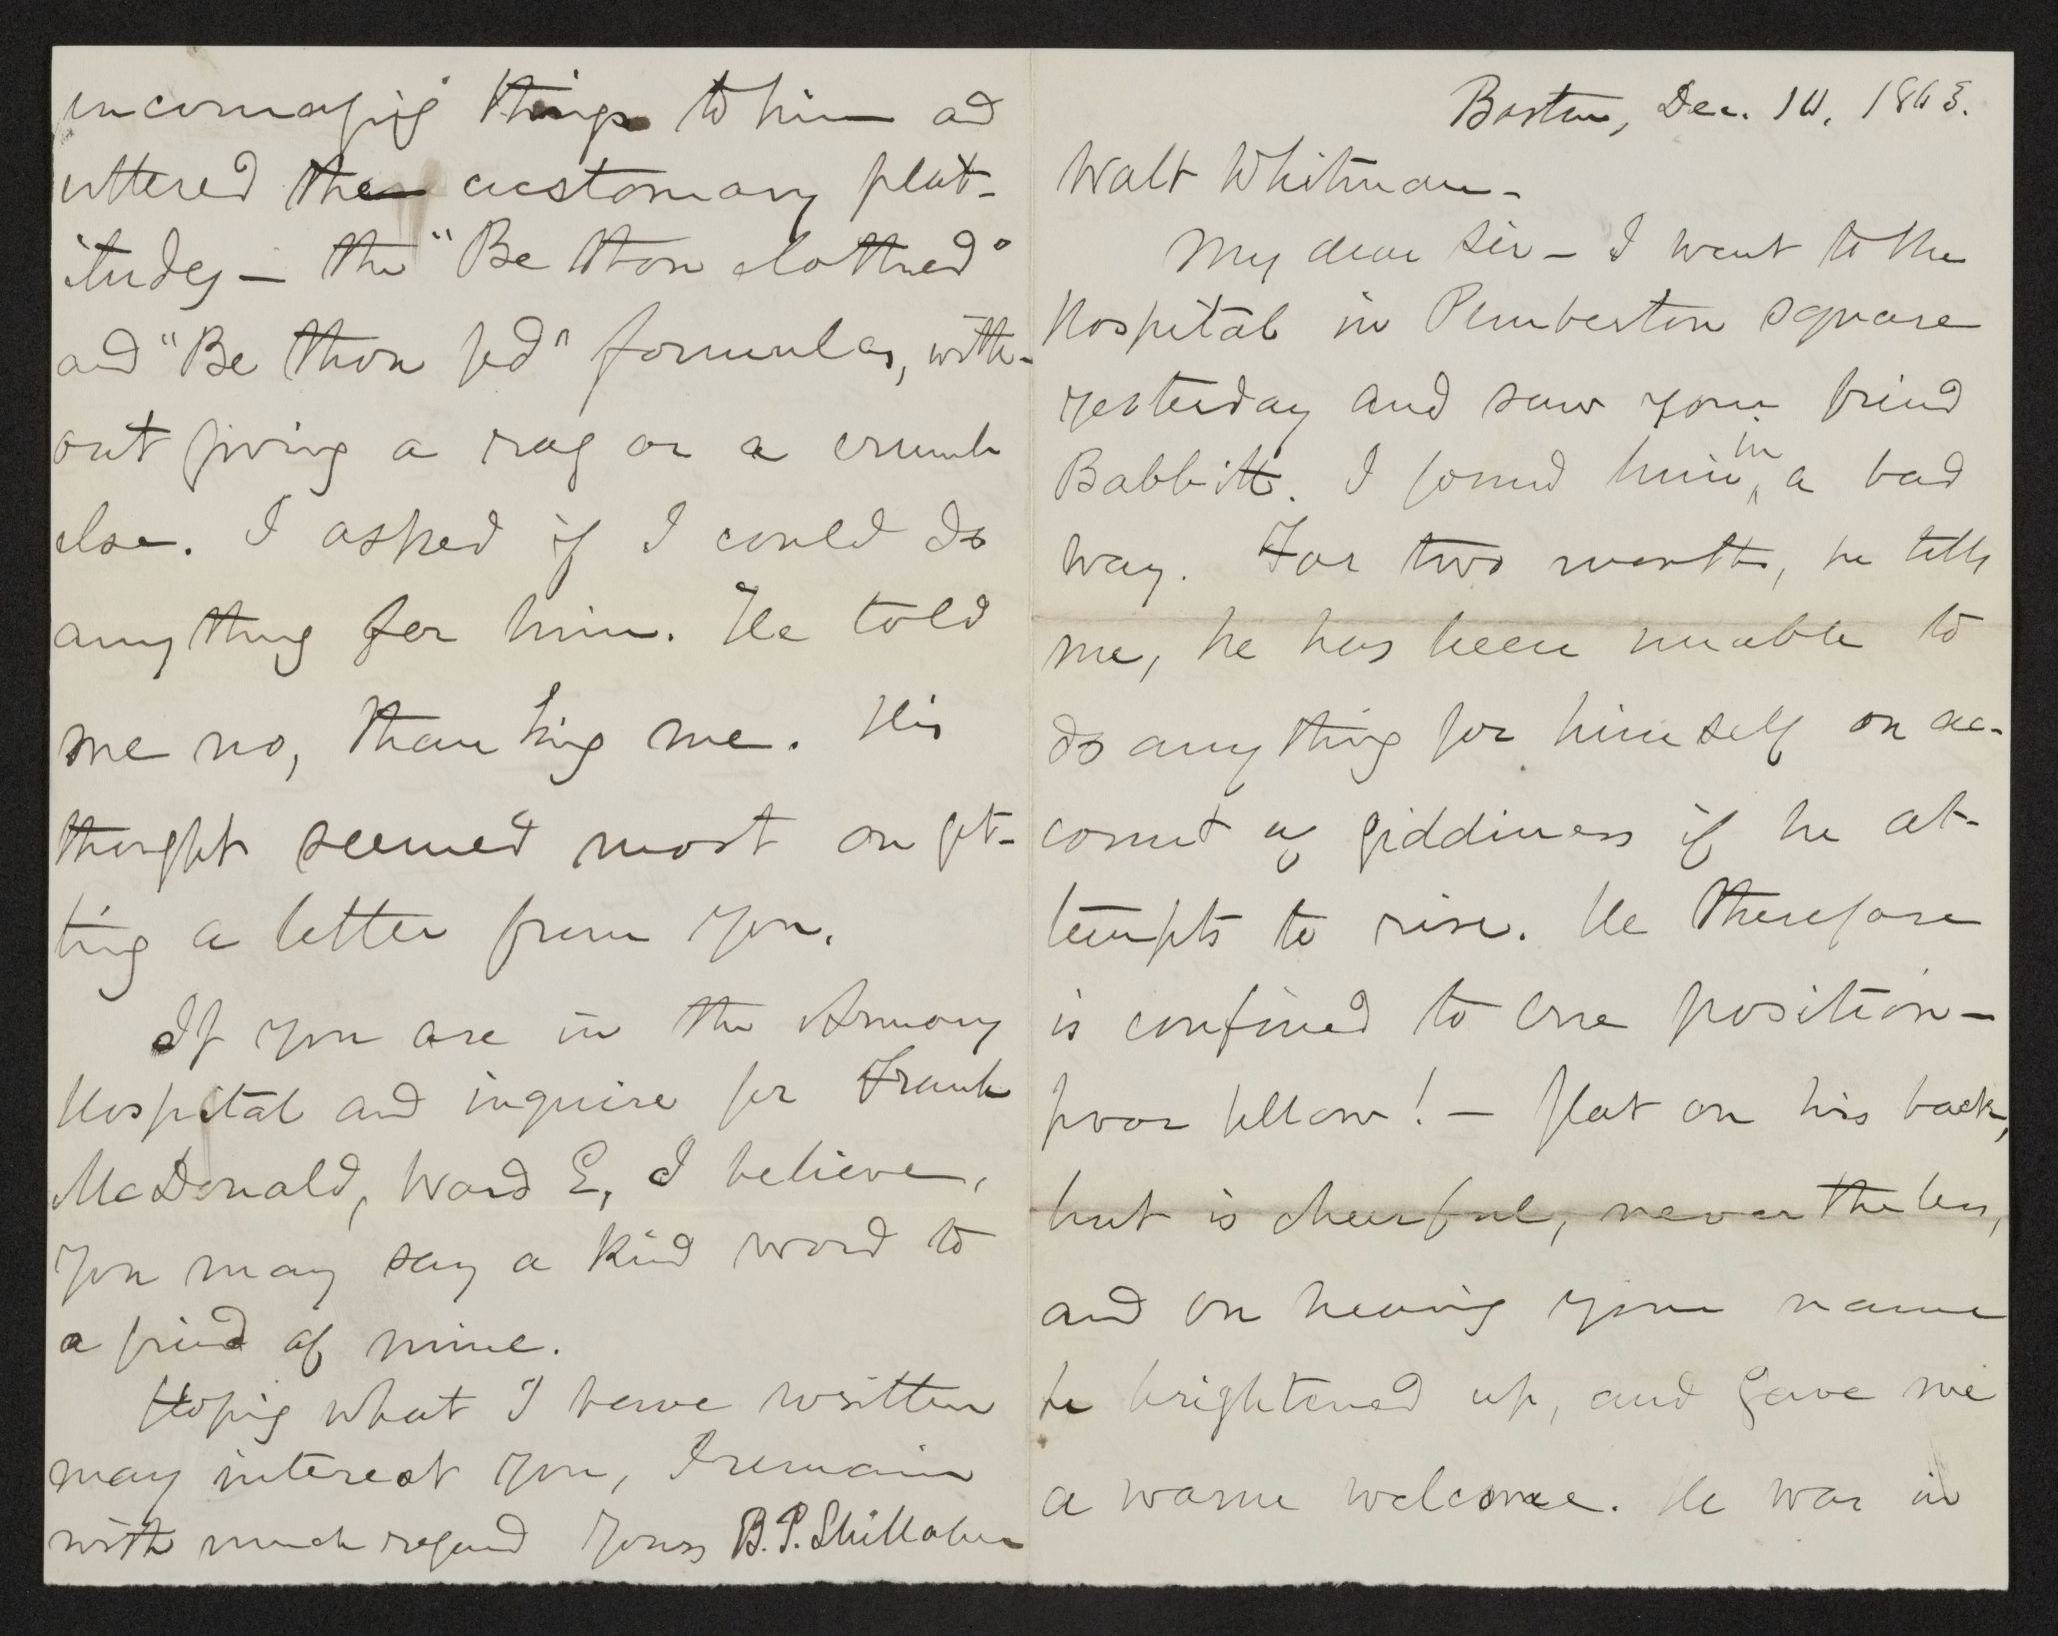 Boston, Dec. 14, 1863.
Walt Whitman -
My dear Sir - I went to the
Hospital in Pemberton square
yesterday and saw your friend
Babbitt. I found him in a bad
way. For two months, he tells
me, he has been unable to
do anything for himself on ac-
count of giddiness if he at-
tempts to rise. He therefore
is confined to one position -
poor fellow! - flat on his back,
but is cheerful, never the less,
and on hearing your name
he brightened up, and gave me
a warm welcome. He was in
encouraging things to him and
uttered the customary plat-
itudes - the "Be thou clothed"
and "Be thou fed" formulas, with-
out giving a rag or a crumb
else. I asked if I could do
anything for him. He told
me no, thanking me. His
thought seemed most on get-
ting a letter from you.
If you are in the Armory
Hospital and inquire for Frank
McDonald, Ward E, I believe,
you may say a kind word to
a friend of mine.
Hoping what I have written
may interest you, I remain
with much regard Yours B. P. Shillaber